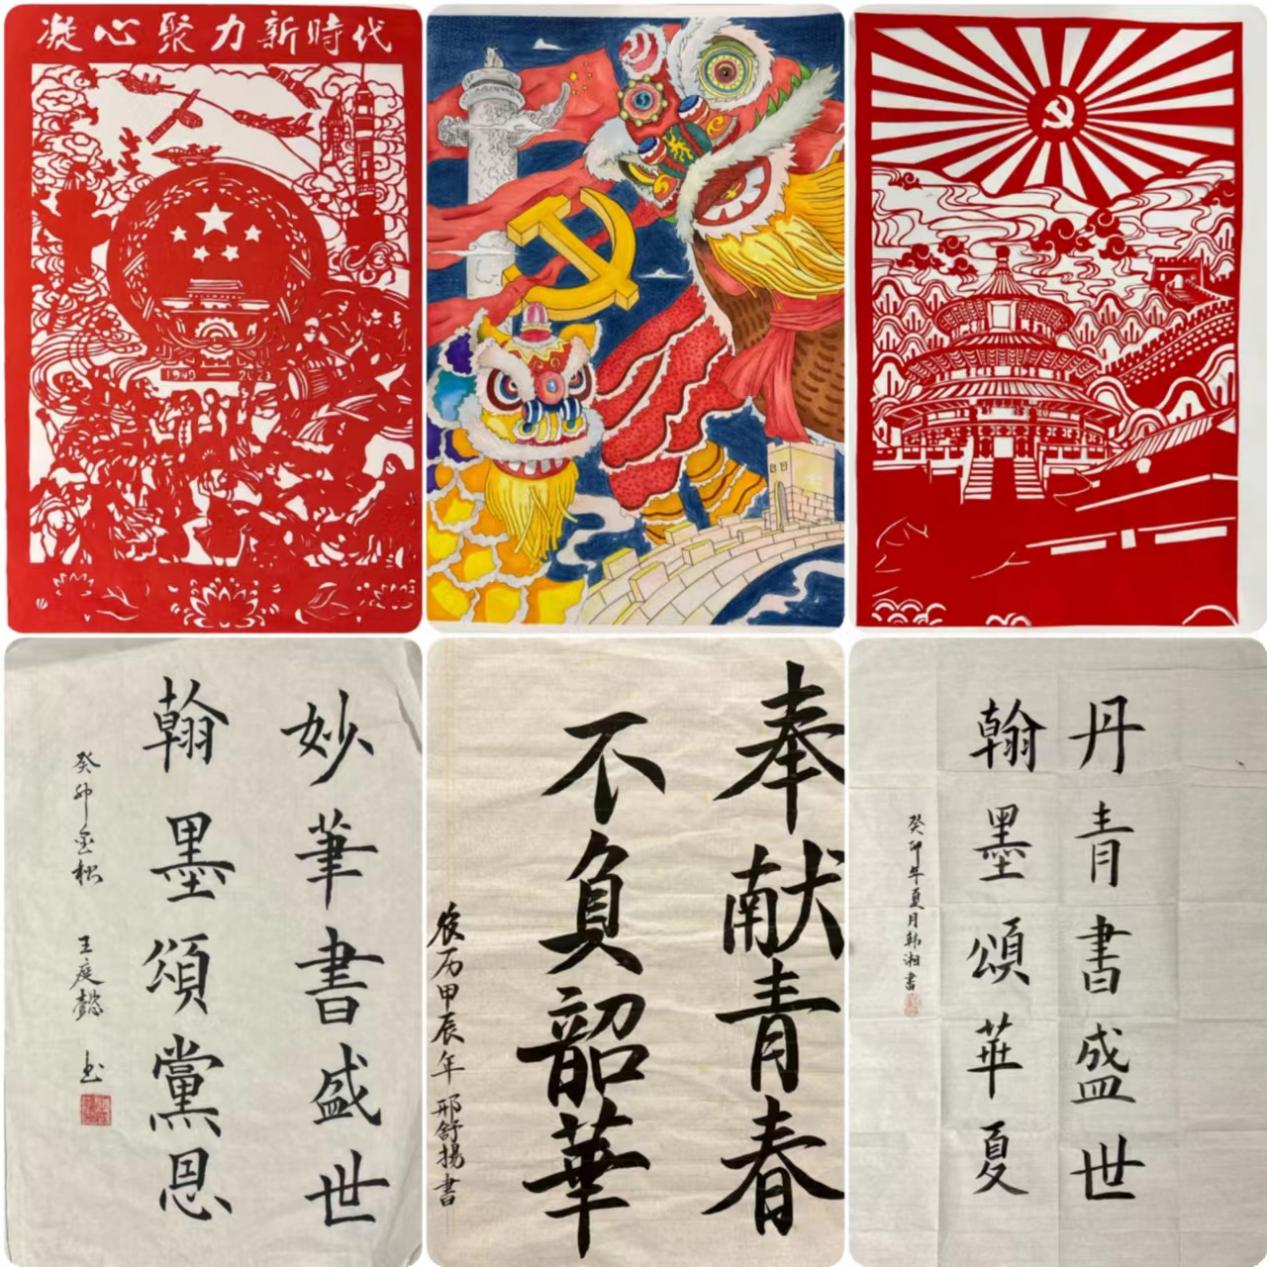 凝心聚力新時代
1949
妙筆書盛世
翰墨頌黨恩
癸卯金松 王庭懿 书
奉献青春
不負韶華
农历甲辰年 邢舒揚書
丹青書盛世
翰墨頌華夏
癸卯年夏月韩湘書